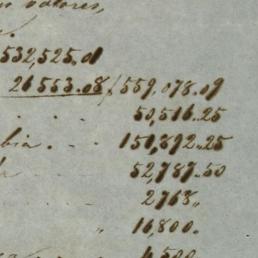 valores,
532,525.01
26553.08 / 559.078.09
50,516..25
bia. - - 151,892..25
52,787.50
2763,,
" 16,800.
4,500